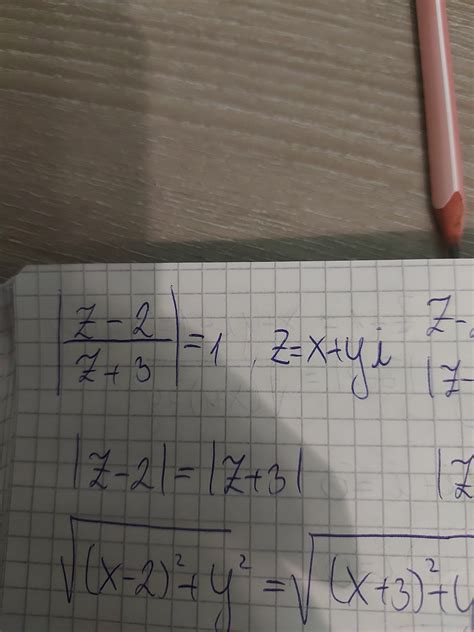 |(z-2)/(z+3)|=1, z=x+yi z-
|z-
|z-2|=|z+3| |z
√((x-2)²+y²)=√((x+3)²+y